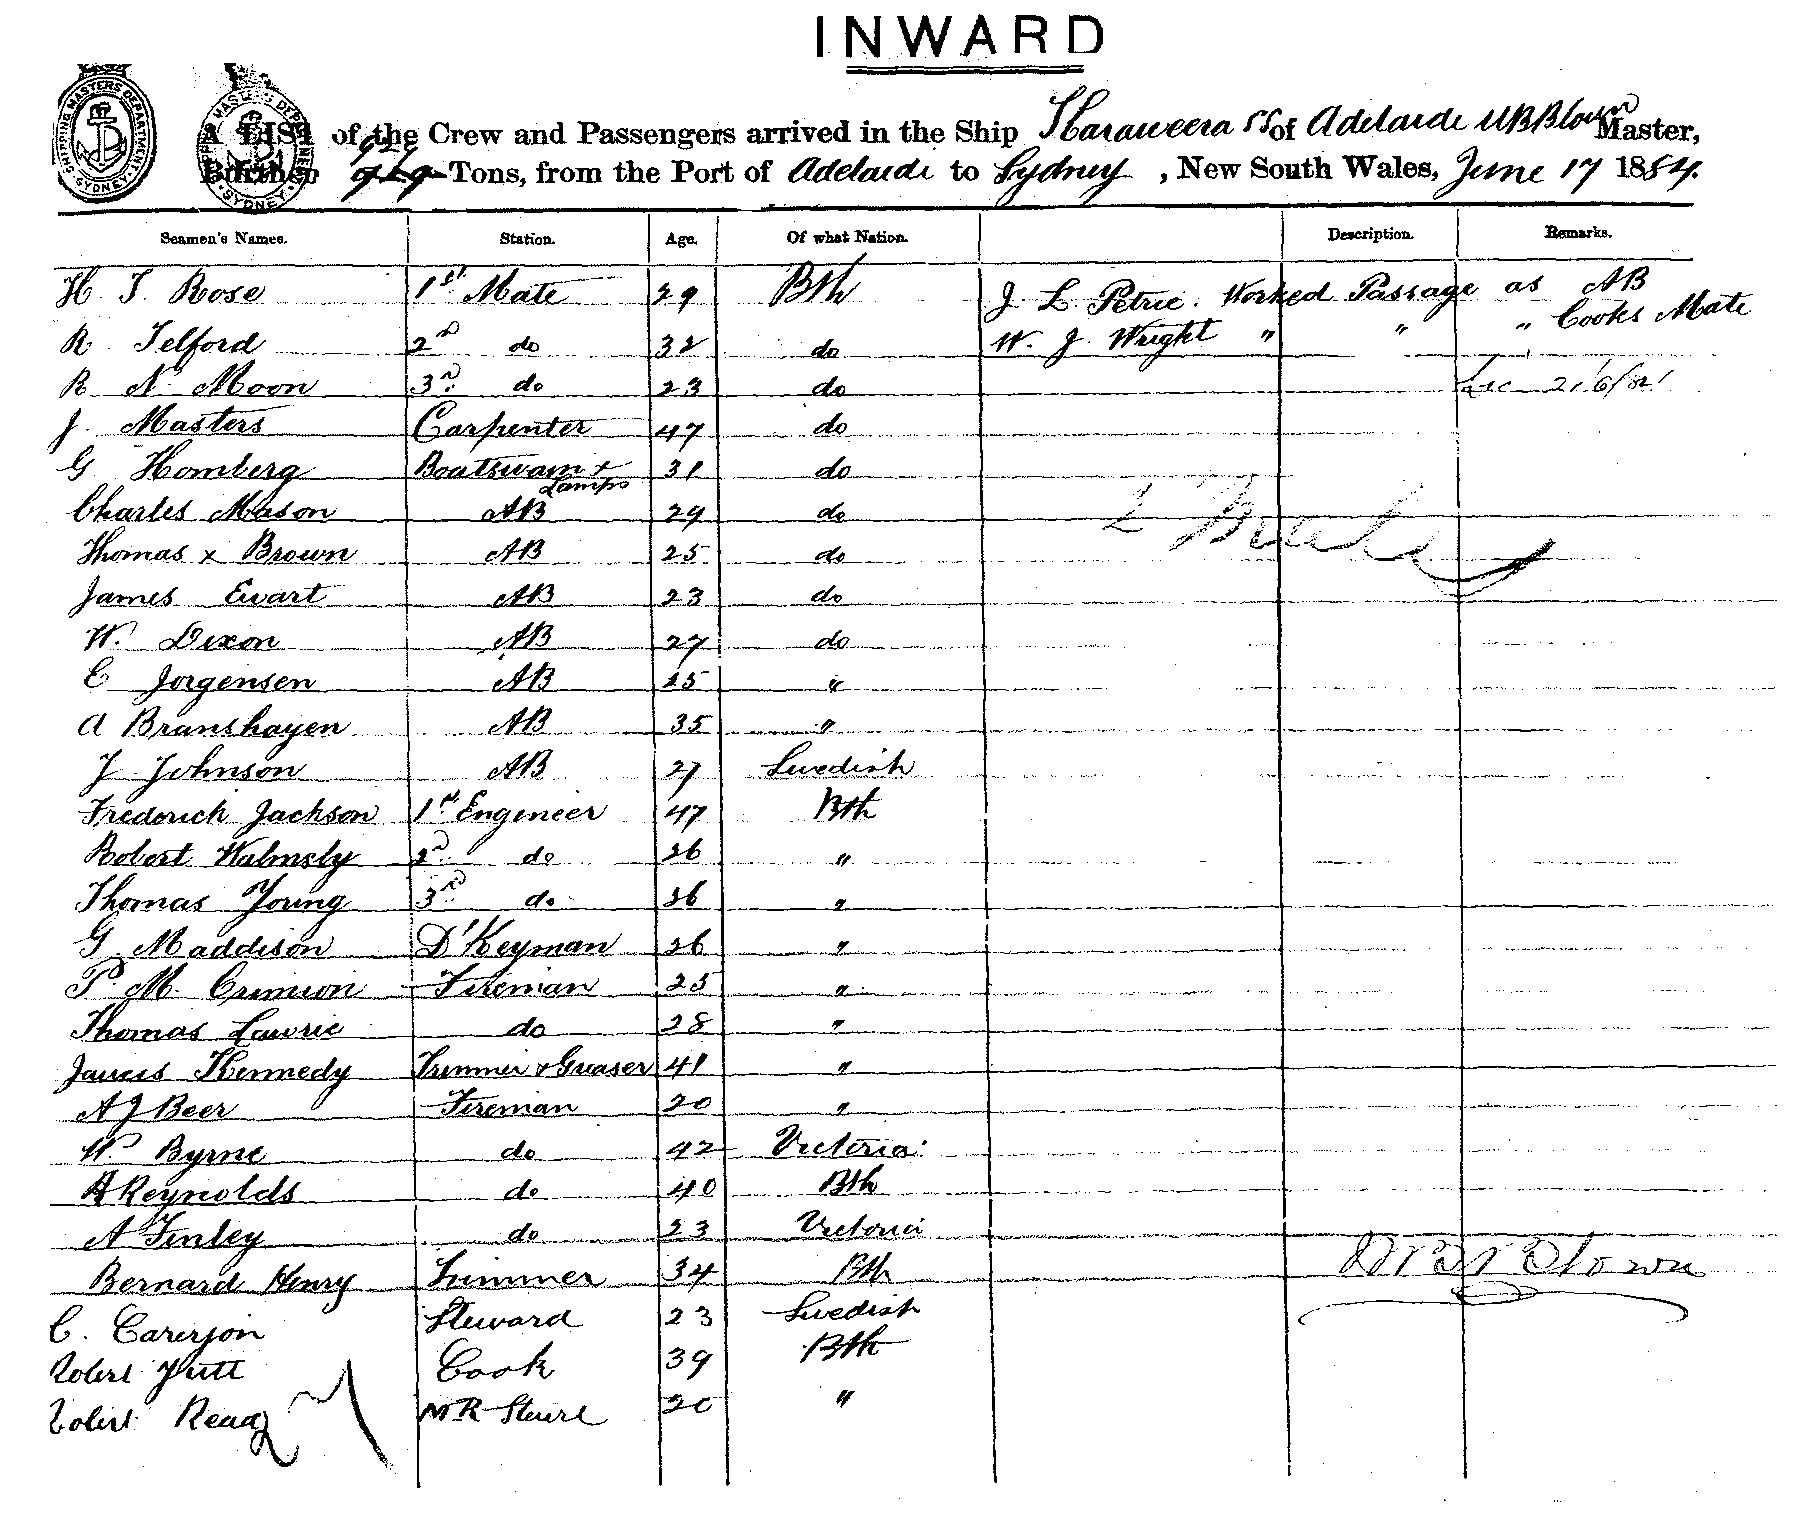 INWARD
SHIPPING MASTERS DEPARTMENT SYDNEY
A LIST of the Crew and Passengers arrived in the Ship Karaweera SS of Adelaide Master,
Burthen Tons, from the Port of Adelaide to Sydney, New South Wales, June 17 1884.
Seamen's Names. Station. Age. Of what Nation. Description. Remarks.
H. J. Rose 1st Mate 29 Bth J. L. Petrie. Worked Passage as AB
R. Telford 2d do 32 do W. J. Wright " " " Cooks Mate
R N. Moon 3rd do 23 do
J. Masters Carpenter 47 do
G Homberg Boatswain + Lamps 31 do
Charles Mason AB 29 do
Thomas x Brown AB 25 do
James Ewart AB 23 do
W. Dixon AB 27 do
E Jorgensen AB 25 "
A Branshayen AB 35 "
J Johnson AB 27 Swedish
Frederick Jackson 1st Engineer 47 Bth
Robert Walmsly 2d do 26 "
Thomas Young 3rd do 26 "
G Maddison D'Keyman 26 "
P. M. Crimion Fireman 25 "
Thomas Lawrie do 28 "
James Kennedy Trimmer & Greaser 41 "
A J Beer Fireman 20 "
W Byrne do 42 Victoria
R Reynolds do 40 Bth
A Finley do 23 Victoria
Bernard Henry Trimmer 34 Bth
C. Steward 23 Swedish
Robert Cook 39 Bth
Robert 20 "